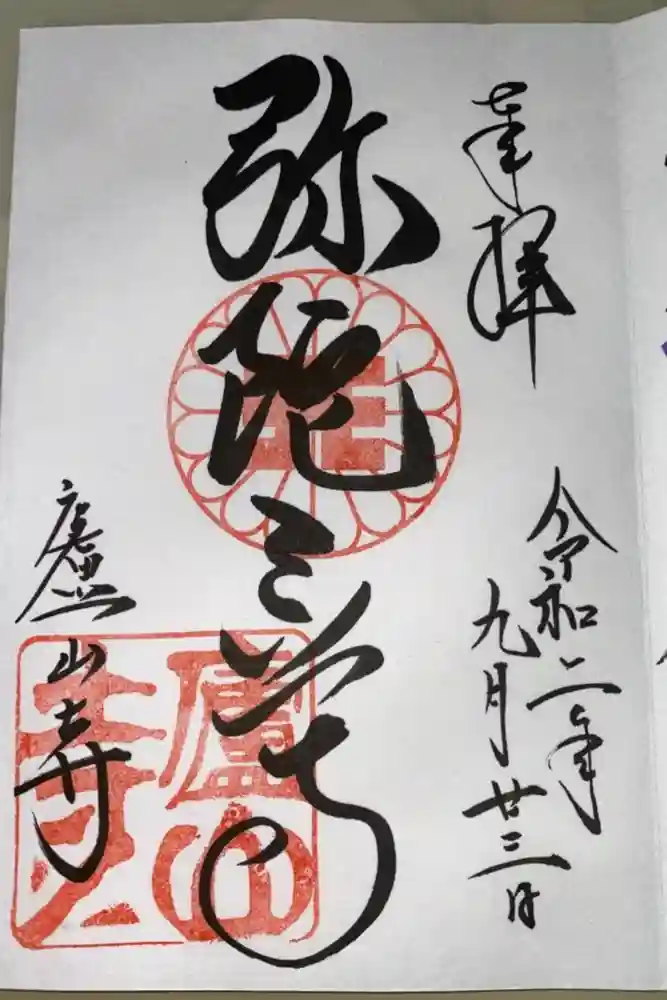 奉拝
令和二年
九月廿三日
弥陀三尊
廬山寺
廬山
寺